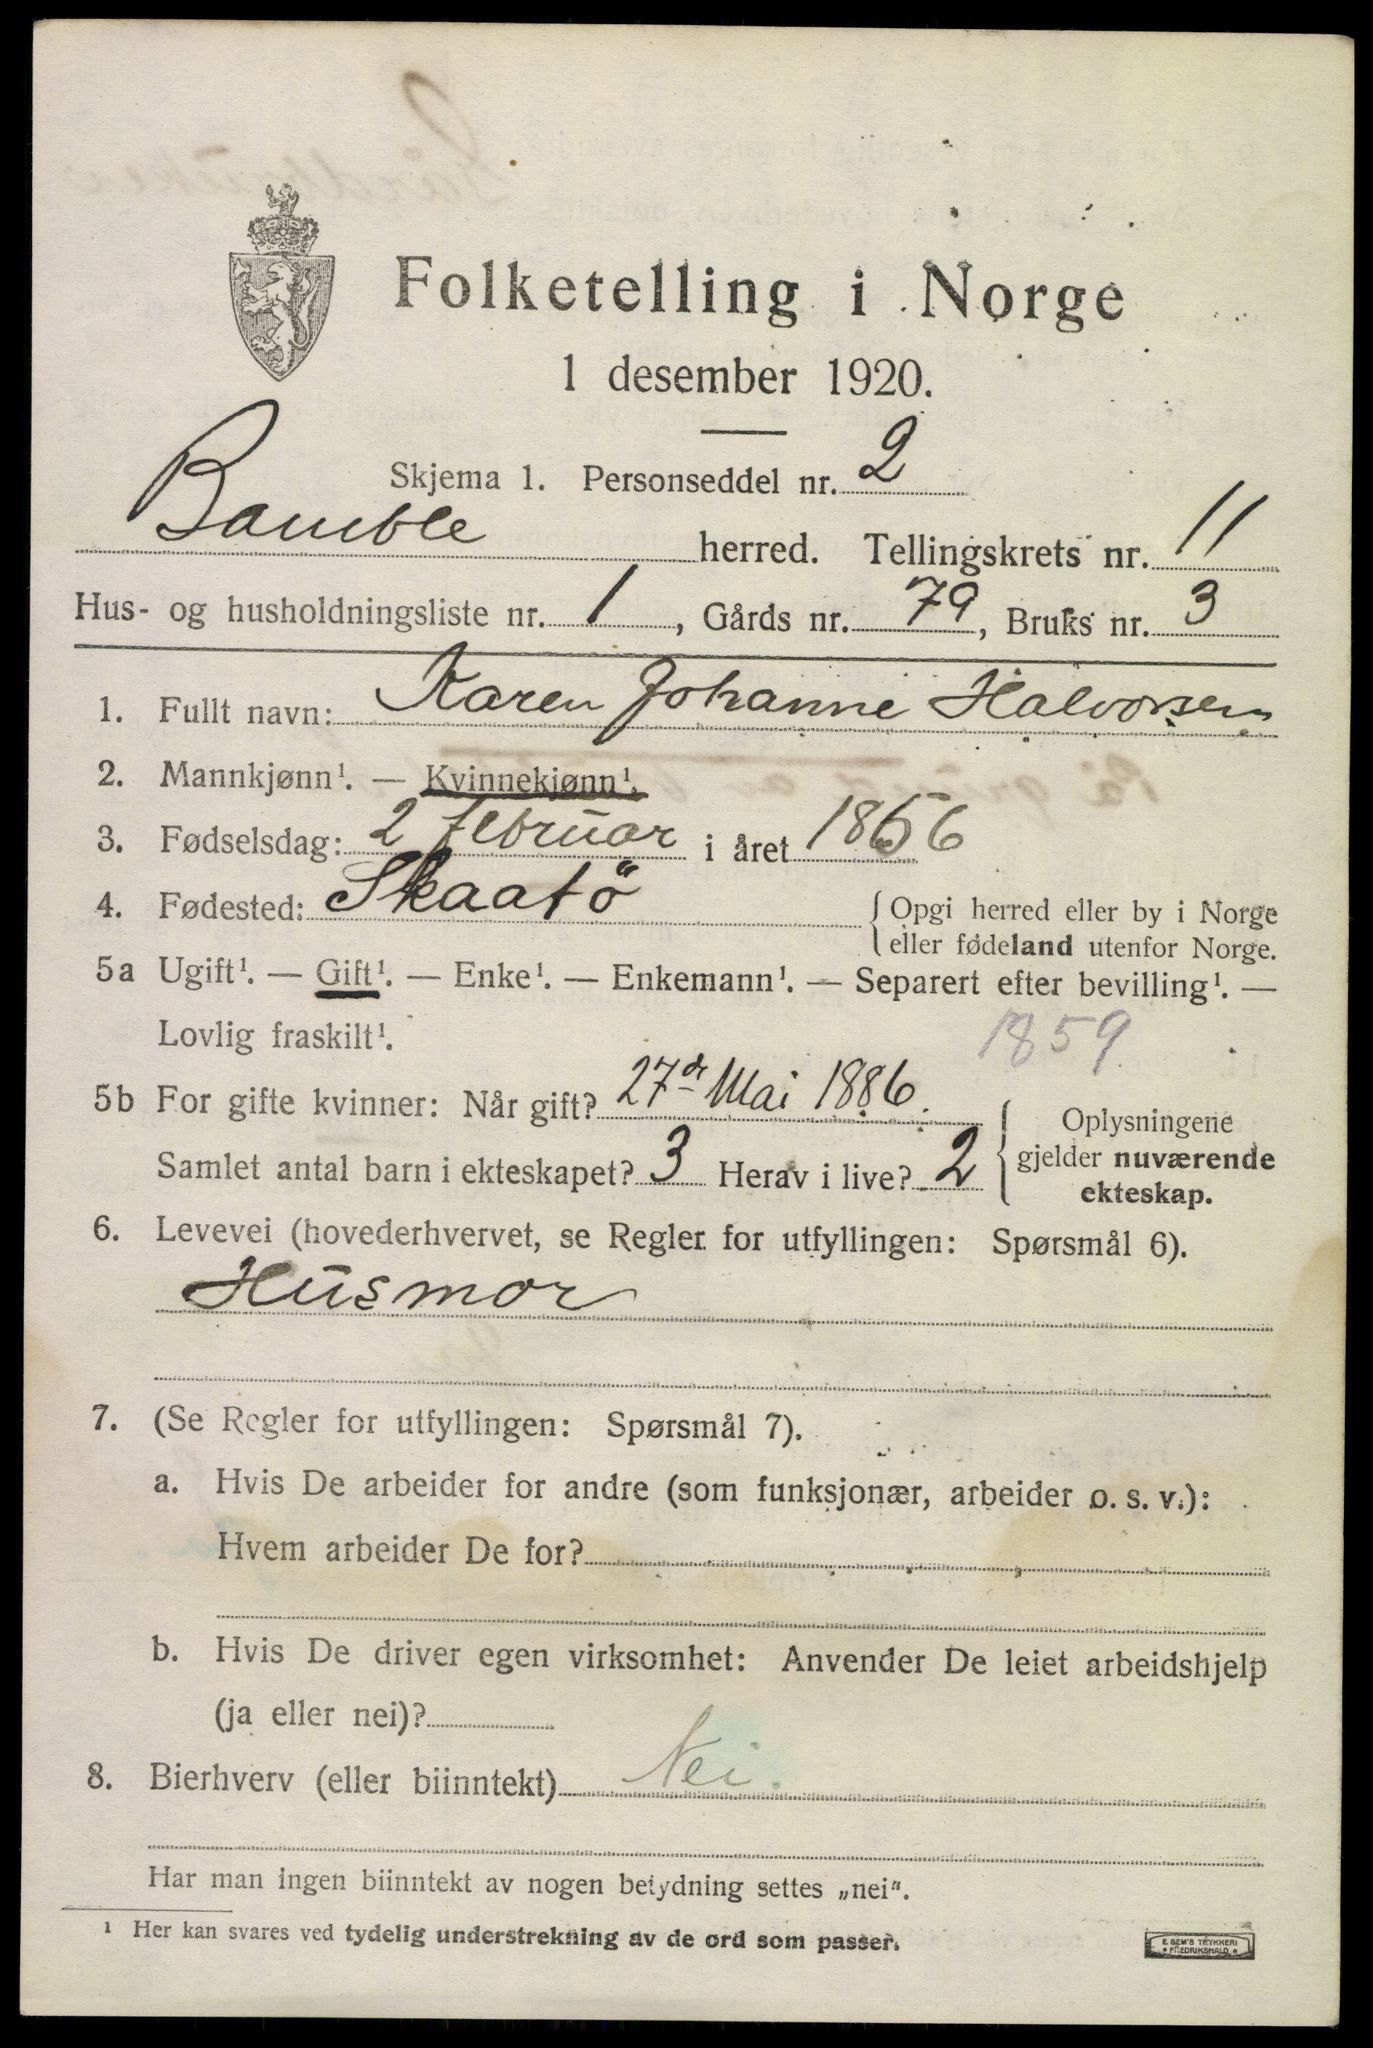 Folketelling i Norge
1 desember 1920.
Skjema 1. Personseddel nr. 2
Bamble herred. Tellingskrets nr. 11
Hus- og husholdningsliste nr. 1, Gårds nr. 79, Bruks nr. 3
1. Fullt navn: Karen Johanne Halvorsen
2. Mannkjønn¹. — Kvinnekjønn¹.
3. Fødselsdag: 2 februar i året 1856
4. Fødested: Skaatö {Opgi herred eller by i Norge
eller fødeland utenfor Norge.
5a Ugift¹. — Gift¹. — Enke¹. — Enkemann¹. — Separert efter bevilling¹. —
Lovlig fraskilt¹.
1859
5b For gifte kvinner: Når gift? 27de Mai 1886. {Oplysningene
gjelder nuværende
Samlet antal barn i ekteskapet? 3 Herav i live? 2
ekteskap.
6. Levevei (hovederhvervet, se Regler for utfyllingen: Spørsmål 6).
Husmor
7. (Se Regler for utfyllingen: Spørsmål 7).
a. Hvis De arbeider for andre (som funksjonær, arbeider o. s. v.):
Hvem arbeider De for?
b. Hvis De driver egen virksomhet: Anvender De leiet arbeidshjelp
(ja eller nei)?
8. Bierhverv (eller biinntekt) Nei.
Har man ingen biinntekt av nogen betydning settes „nei".
¹ Her kan svares ved tydelig understrekning av de ord som passer.
E. SEM'S TRYKKERI
FREDRIKSHALD